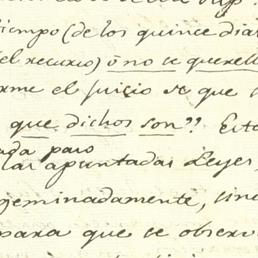 tiempo (de los quince dias
el recurso) ó no se querell
rme el juicio se que
que dichos son?? Esto
ada paso
las apuntadas Leyes,
geminadamente, sino
para que se observ